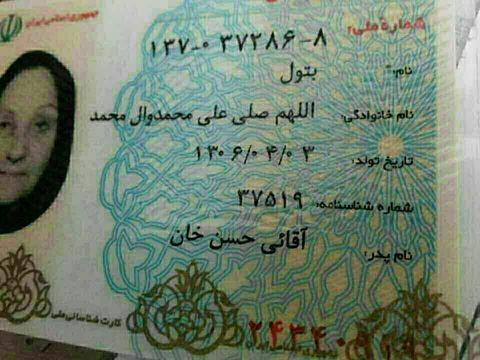 جمهوری اسلامی ایران
شماره ملی:
۱۳۷-۰۳۷۲۸۶-۸
نام: بتول
نام خانوادگی: اللهم صلی علی محمدوال محمد
تاریخ تولد: ۱۳۰۶/۰۴/۰۳
شماره شناسنامه: ۳۷۵۱۹
نام پدر: آقائی حسن خان
کارت شناسائی ملی